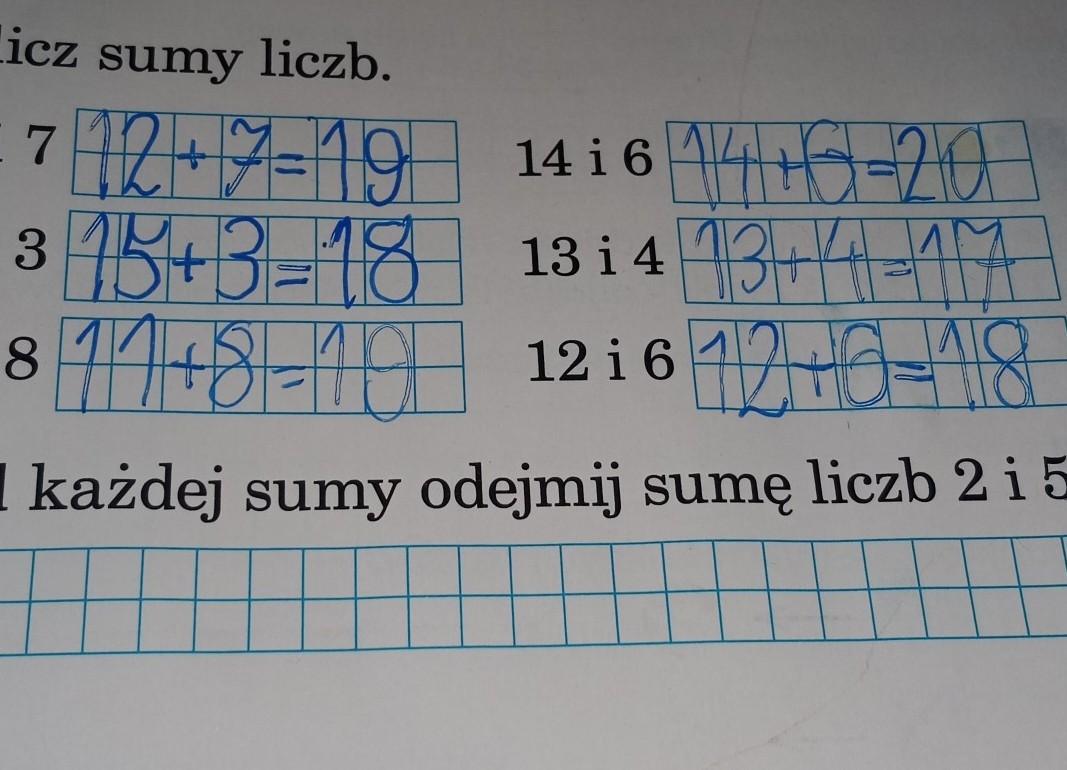 licz sumy liczb.
7 12+7=19 14 i 6 14+6=20
3 15+3=18 13 i 4 13+4=17
8 11+8=19 12 i 6 12+6=18
każdej sumy odejmij sumę liczb 2 i 5